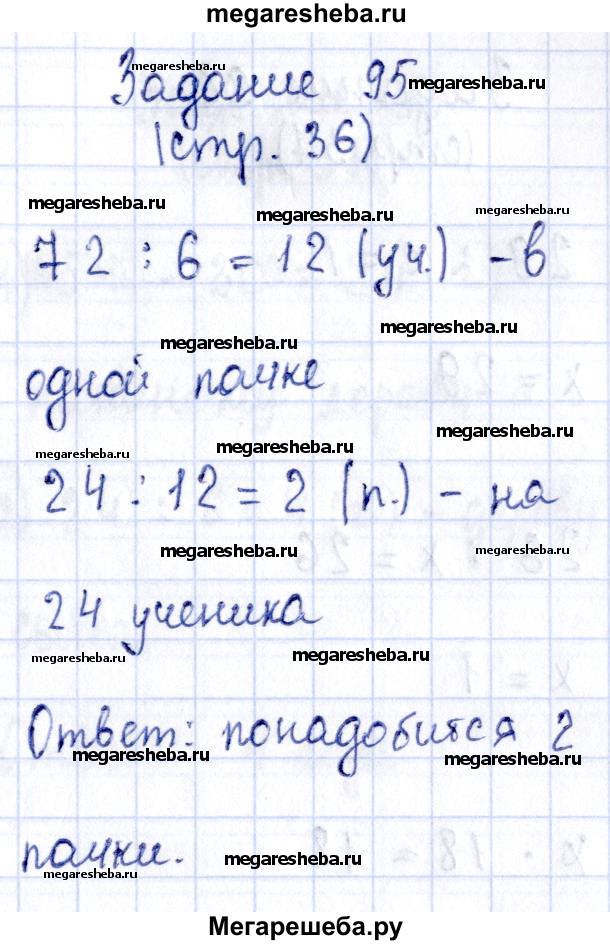 megaresheba.ru
megaresheba.ru
Задание 95 megaresheba.ru
(стр. 36)
megaresheba.ru megaresheba.ru megaresheba.ru
72 : 6 = 12 (уч.) - в
megaresheba.ru megaresheba.ru
одной пачке
megaresheba.ru megaresheba.ru megaresheba.ru
24 : 12 = 2 (п.) - на
megaresheba.ru megaresheba.ru
24 ученика
megaresheba.ru megaresheba.ru
Ответ: понадобится 2
megaresheba.ru megaresheba.ru
пачки. megaresheba.ru
megaresheba.ru
Мегарешеба.ру